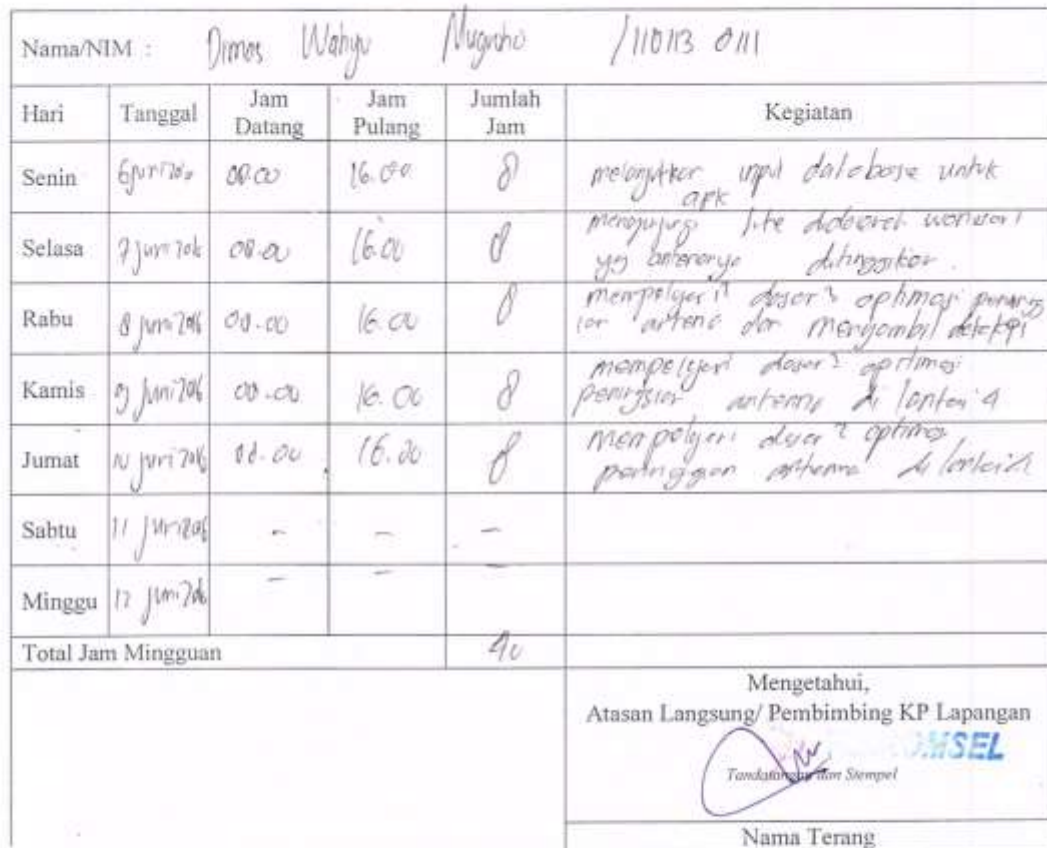 Nama/NIM : Dimas Wahyu Nugroho /110113 0111
Hari Tanggal Jam Datang Jam Pulang Jumlah Jam Kegiatan
Senin 6 juni 2016 08.00 16.00 8 melanjutkan input database untuk
apk
Selasa 7 juni 2016 08.00 16.00 8 mengunjungi site didaerah wonosari
yg antenanya ditinggikan.
Rabu 8 juni 2016 08.00 16.00 8 mempelajari dasar2 optimasi
antena dan mengambil
Kamis 9 juni 2016 08.00 16.00 8 mempelajari dasar2 optimasi
antenna di lantai 4
Jumat 10 juni 2016 08.00 16.00 8 mempelajari dasar2 optimasi
peninggian antenna di lantai 4
Sabtu 11 juni 2016 - - -
Minggu 12 juni 2016 - - -
Total Jam Mingguan 40
Mengetahui,
Atasan Langsung/ Pembimbing KP Lapangan
OMSEL
Tandatangan dan Stempel
Nama Terang